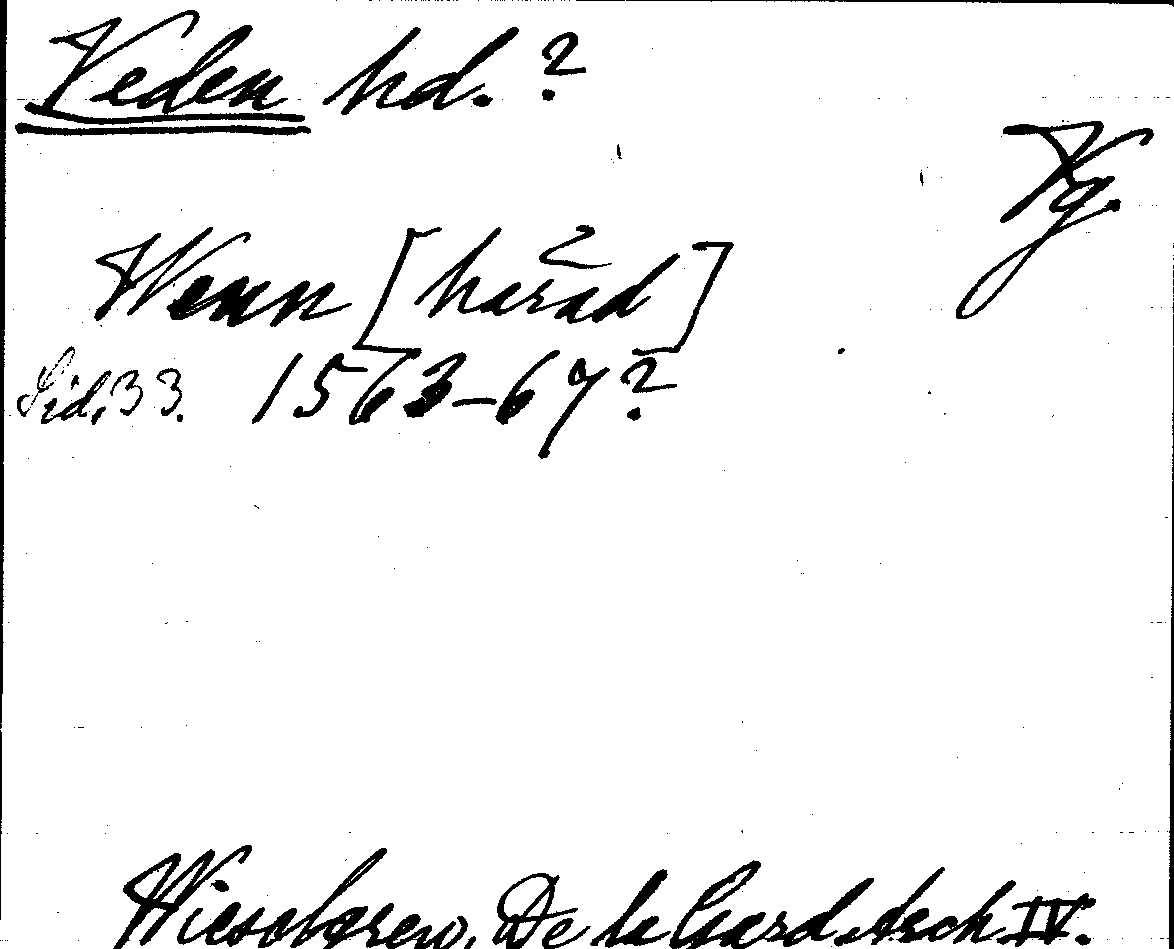 Veden hd. ?
Vg.
Wenn [härad]
Sid. 33. 1563-67?
Wieselgren, De la Gard. Arch IV.